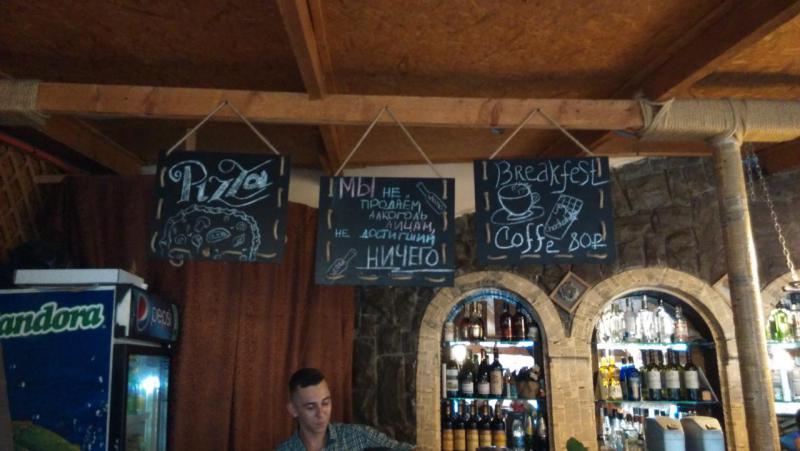 Pizza
МЫ НЕ
ПРОДАЁМ
АЛКОГОЛЬ
ЛИЦАМ,
НЕ ДОСТИГШИЙ
НИЧЕГО
BreakfesT
Chocolate
Coffe 80₽
andora
pepsi